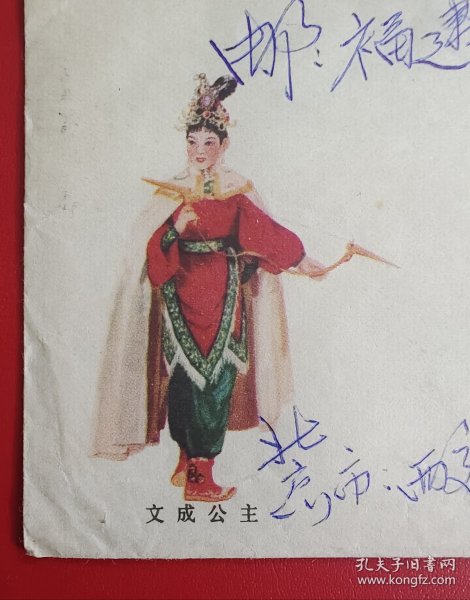 邮：福建
文成公主
北京市：
孔夫子旧书网
www.kongfz.com